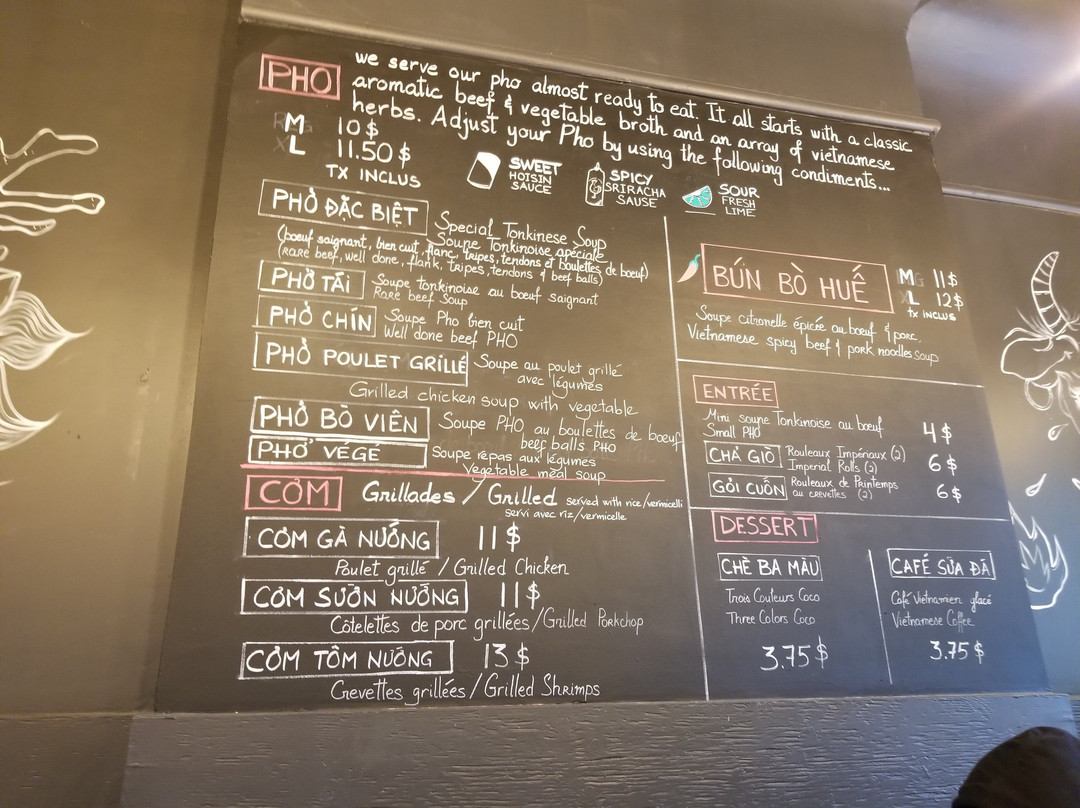 PHO
we serve our pho almost ready to eat. It all starts with a classic
aromatic beef & vegetable broth and an array of vietnamese
herbs. Adjust your Pho by using the following condiments...
M 10$
L 11.50$
TX INCLUS
SWEET
HOISIN
SAUCE
SPICY
SRIRACHA
SAUSE
SOUR
FRESH
LIME
PHỞ ĐẶC BIỆT
Special Tonkinese Soup
Soupe Tonkinoise spéciale
(boeuf saignant, bien cuit, flanc, tripes, tendons et boulettes de boeuf)
(Rare beef, well done, flank, tripes, tendons & beef balls)
PHỞ TÁI
Soupe tonkinoise au boeuf saignant
Rare beef Soup
PHỞ CHÍN
Soupe Pho bien cuit
Well done beef PHO
PHỞ POULET GRILLÉ
Soupe au poulet grillé
avec légumes
Grilled chicken soup with vegetable
PHỞ BÒ VIÊN
Soupe PHO au boulettes de boeuf
beef balls PHO
PHỞ VÉGÉ
Soupe repas aux légumes
Vegetable meal soup
CƠM
Grillades / Grilled served with rice/vermicelli
servi avec riz/vermicelle
CƠM GÀ NƯỚNG 11$
Poulet grillé / Grilled Chicken
CƠM SƯỜN NƯỚNG 11$
Côtelettes de porc grillées / Grilled Porkchop
CƠM TÔM NƯỚNG 13$
Crevettes grillées / Grilled Shrimps
BÚN BÒ HUẾ
M 11$
L 12$
TX INCLUS
Soupe citronelle épicée au boeuf & porc
Vietnamese spicy beef & pork noodles soup
ENTRÉE
Mini soupe Tonkinoise au boeuf
Small PHO
4$
CHẢ GIÒ
Rouleaux Impériaux (2)
Imperial Rolls (2)
6$
GỎI CUỐN
Rouleaux de Printemps
au crevettes (2)
6$
DESSERT
CHÈ BA MÀU
Trois Couleurs Coco
Three Colors Coco
3.75$
CAFÉ SỮA ĐÁ
Café Vietnamien glacé
Vietnamese Coffee
3.75$